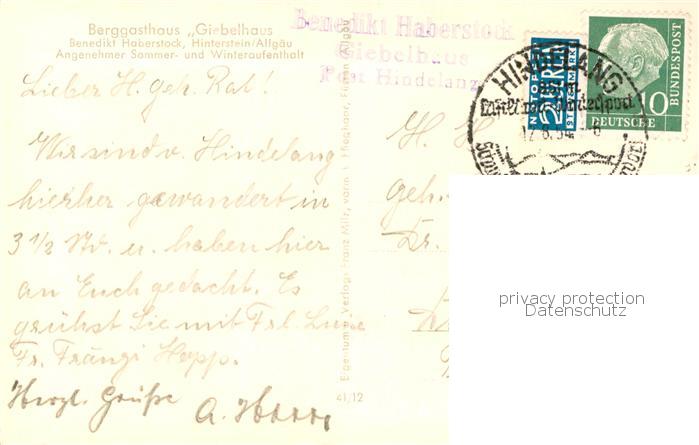 Berggasthaus „Giebelhaus
Benedikt Haberstock, Hinterstein/Allgäu
Angenehmer Sommer- und Winteraufenthalt
Benedikt Haberstock
Giebelhaus
Post Hindelang
Lieber H. geh. Rat!
Wir sind v. Hindelang
hierher gewandert in
3 1/2 Std. u. haben hier
an Euch gedacht. Es
grüßt Sie mit Frl. Luise
Fr. Fränzi Hopp.
Herzl. Grüße
A. Hopp
Eigentum u. Verlag: Franz Milz, vorm.
41/12
H. H
geh.
Dr.
NOTOPFER
2
BERLIN
STEUERMARKE
10
DEUTSCHE
BUNDESPOST
HINDELANG
12.8.54
privacy protection
Datenschutz